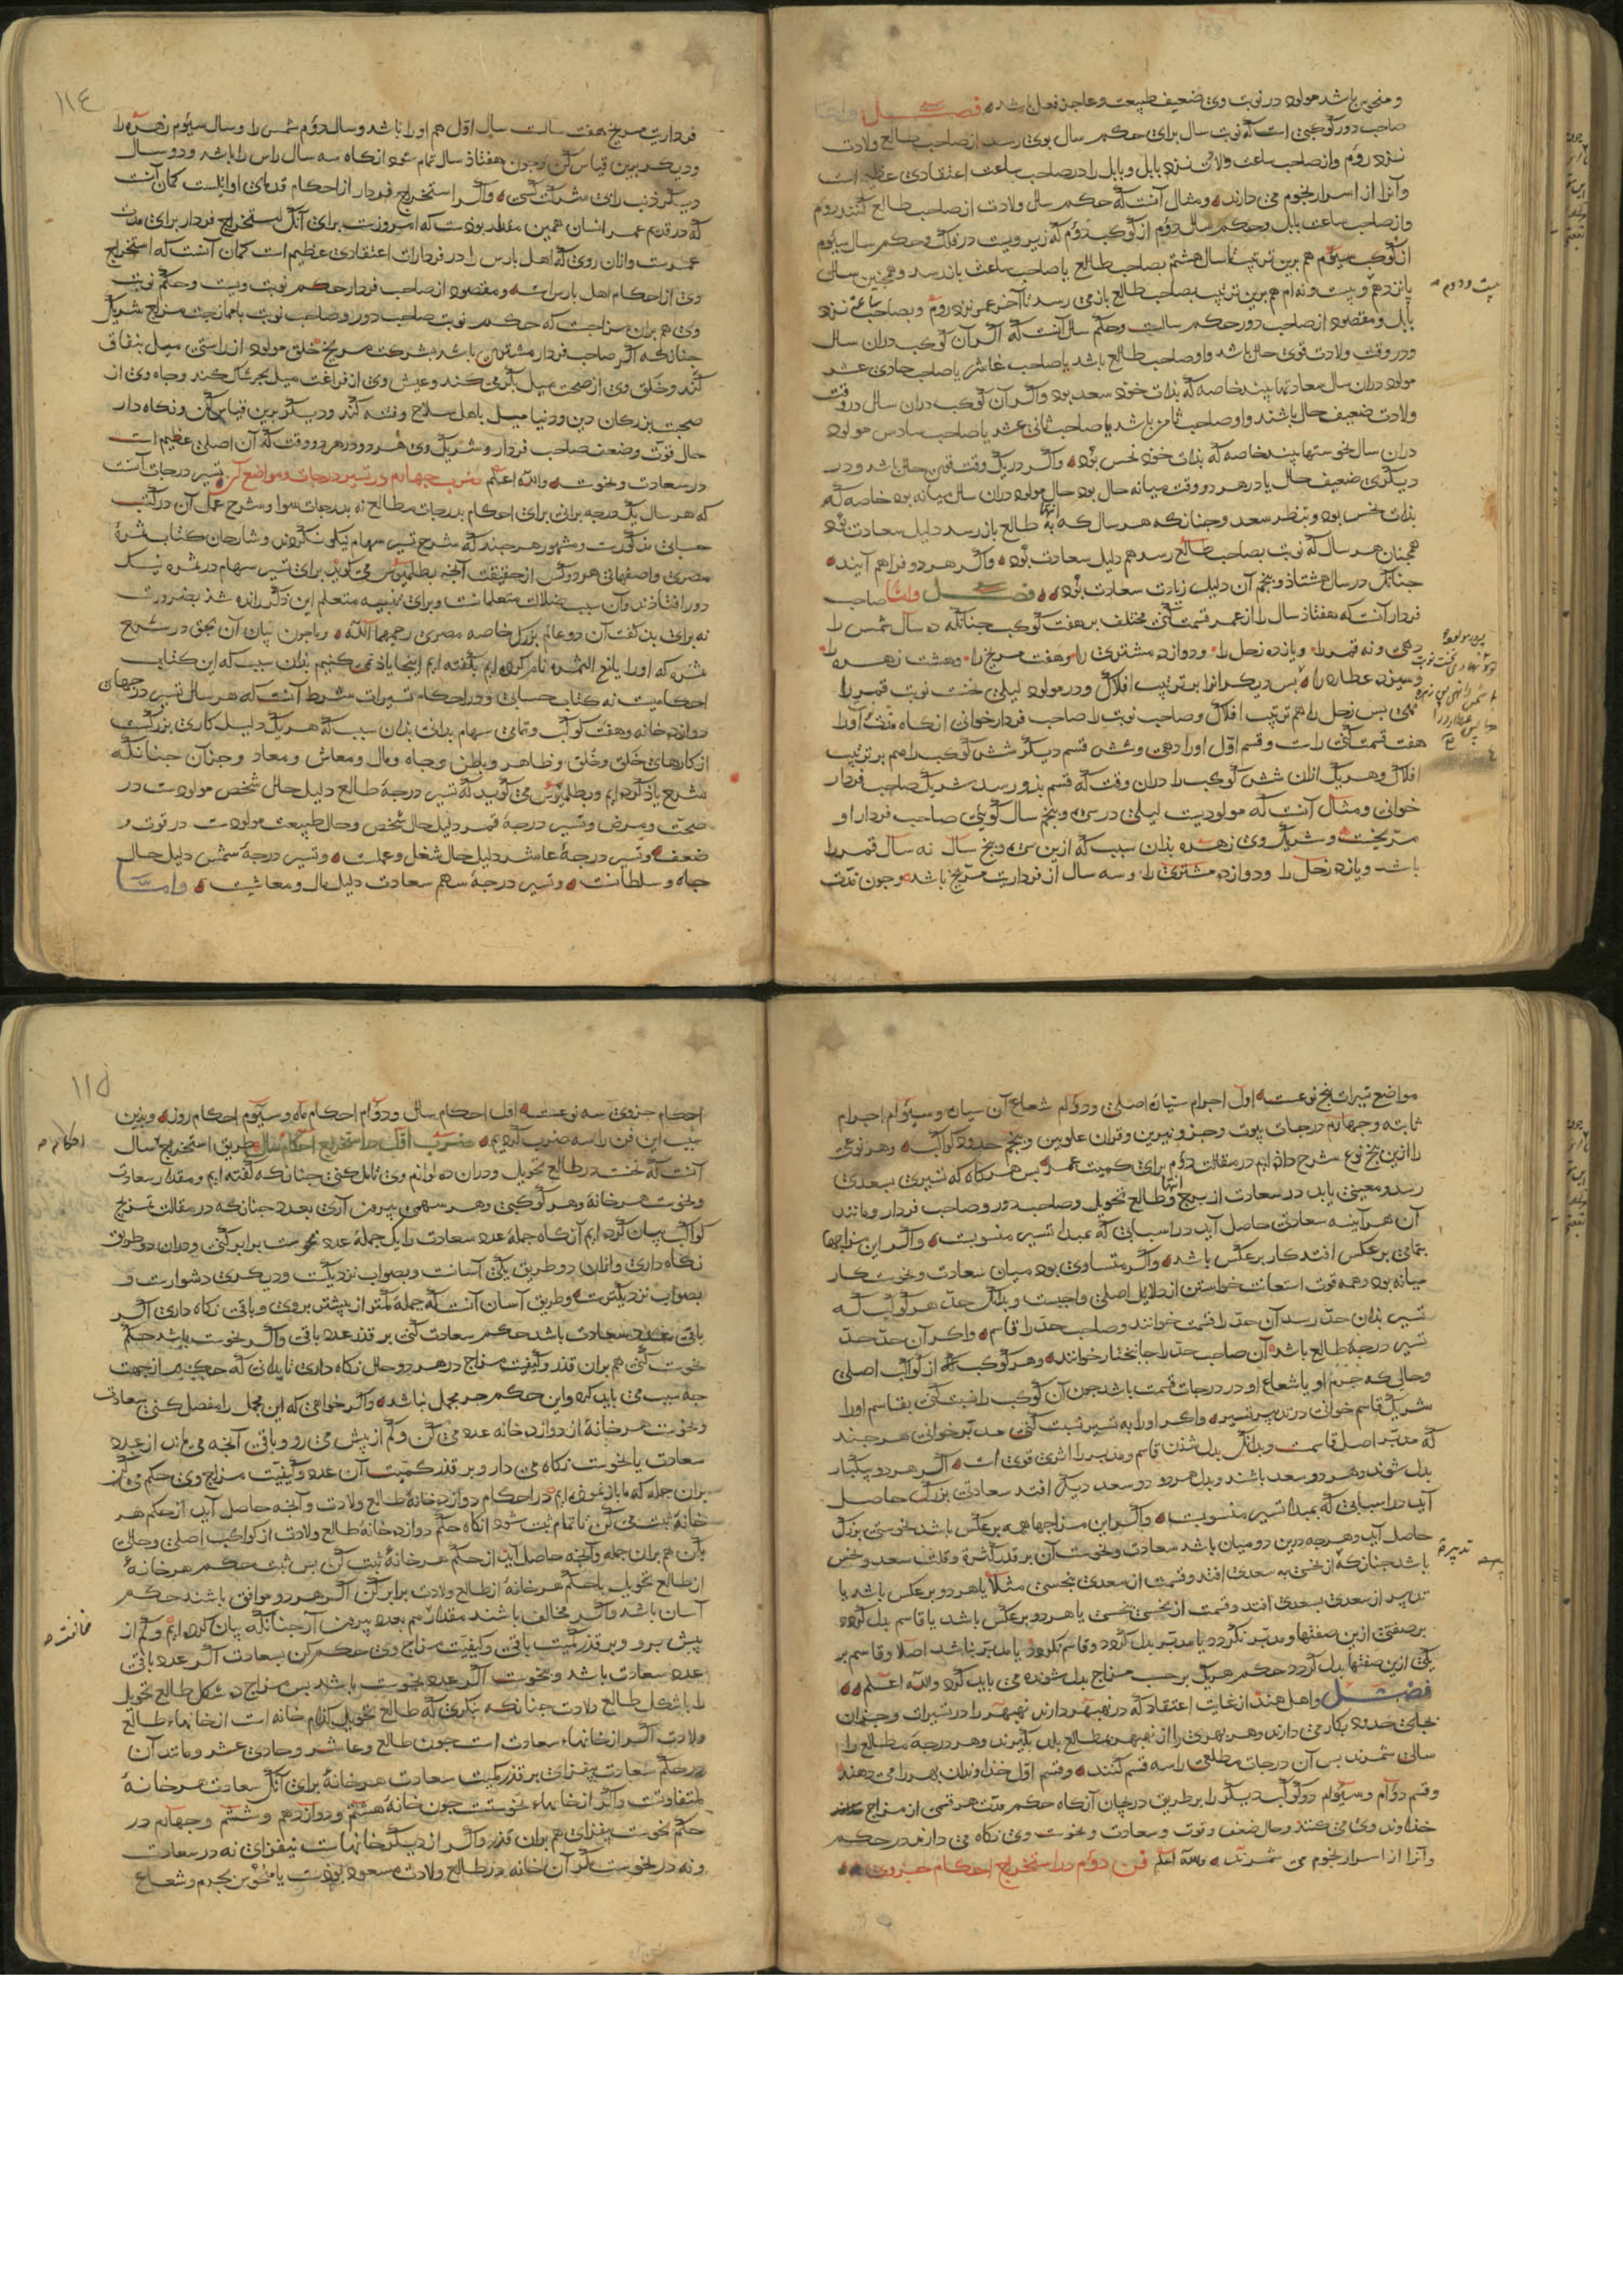 و منحوس باشد مولود در نوبت وی ضعیف طبیعت و عاجز فعل باشد فصل واما
صاحب دور کوکبی است که نوبت سال برای حکم سال بوی رسد از صاحب طالع ولادت
نزد روم و از صاحب ساعت ولادت نزد بابل و بابل را در صاحب ساعت اعتقادی عظیم است
و آنرا از اسرار نجوم می دارند و مثال آنست که حکم سال ولادت از صاحب طالع کنند بروم
و از صاحب ساعت ببابل و حکم سال دوم از کوکب دوم که زیر ویست در فلک و حکم سال سیوم
از کوکب سیوم هم برین ترتیب تا سال هشتم بصاحب طالع یا صاحب ساعت باز رسد و همچنین سال
پانزدهم و بیست و نهم هم برین ترتیب بصاحب طالع باز می رسد تا آخر عمر نزد روم و بصاحب ساعت نزد
بیست و دوم
بابل و مقصود از صاحب دور حکم سالست و حکم سال آنست که اگر آن کوکب دران سال
و در وقت ولادت قوی حال باشد و او صاحب طالع باشد یا صاحب عاشر یا صاحب حادی عشر
مولود دران سال سعادتها بیند خاصه که بذات خود سعد بود و اگر آن کوکب دران سال و در وقت
ولادت ضعیف حال باشند و او صاحب ثامن باشد یا صاحب ثانی عشر یا صاحب سادس مولود
دران سال نحوستها بیند خاصه که بذات خود نحس بود و اگر در یک وقت قوی حال باشد و در
دیگری ضعیف حال یا در هر دو وقت میانه حال بود حال مولود دران سال میانه بود خاصه که
بذات نحس بود و بنظر سعد و چنانکه هر سال که انتها به طالع باز رسد دلیل سعادت بود
همچنان هر سال که نوبت بصاحب طالع رسد هم دلیل سعادت بود و اگر هر دو فراهم آیند
چنانک در سال هشتاذ و پنجم آن دلیل زیادت سعادت بود فصل واما صاحب
فردار آنست که هفتاذ سال را از عمر قسمت کنی مختلف بر هفت کوکب چنانکه ده سال شمس را
دهی و نه قمر را و یازده زحل را و دوازده مشتری را و هفت مریخ را و هشت زهره را
و سیزده عطارد را پس دیگر انرا بر ترتیب افلاک و در مولود لیلی نخست نوبت قمر را
دهی پس زحل را هم ترتیب افلاک و صاحب نوبت را صاحب فردار خوانی انگاه مدت او را
هفت قسمت کنی راست و قسم اول او را دهی و شش قسم دیگر شش کوکب را هم بر ترتیب
افلاک و هر یک ازان شش کوکب را دران وقت که قسم بذو رسد شریک صاحب فردار
خوانی و مثال آنست که مولودیست لیلی در سی و پنجم سال گویی صاحب فردار او
مریخست و شریک وی زهره بذان سبب که ازین سی و پنج سال نه سال قمر را
باشد و یازده زحل را و دوازده مشتری را و سه سال از فردارت مریخ باشد و چون مدت
١١٤
فردارت مریخ هفت سالست سال اول هم او را باشد و سال دوم شمس را و سال سیوم زهره را
و دیگر برین قیاس کن و چون هفتاذ سال تمام شود انگاه سه سال راس را باشد و دو سال
دیگر ذنب را بی شرکت کسی و اگر استخراج فردار از احکام قدمای اوایلست گمان آنست
که در قدیم عمر انسان همین مقدار بودست که امروزست برای آنک استخراج فردار برای مدت
عمرست و ازان روی که اهل پارس را در فردارات اعتقادی عظیم است گمان آنست که استخراج
وی از احکام اهل پارس است و مقصود از صاحب فردار حکم نوبت ویست و حکم نوبت
وی هم بران مزاجست که حکم نوبت صاحب دور و صاحب نوبت باممازجت مزاج شریک
چنانکه اگر صاحب فردار مشتری باشد بشرکت مریخ خلق مولود از راستی میل بنفاق
کند و خلق وی از صحت میل بگرمی کند و عیش وی از فراغت میل بجرشگال کند و جاه وی از
صحبت بزرکان دین و دنیا میل باهل سلاح و فتنه کند و دیگر برین قیاس کن و نگاه دار
حال قوت و ضعف صاحب فردار و شریک وی هر دو در هر دو وقت که آن اصلی عظیم است
در سعادت و نحوست والله اعلم ضرب چهارم در تسییر درجات و مواضع کره تسییر درجات آنست
که هر سال یک درجه برانی برای احکام بدرجات مطالع نه بدرجات سوا و شرح عمل آن در کتب
حسابی مذکورست و مشهور هر چند که مشرح تسییر سهام نیکو نکردند و شارحان کتاب ثمره
مصری و اصفهانی هر دو کس از حقیقت آنچه بطلمیوس می گوید برای تسییر سهام در ثمره نیک
دور افتاذند و آن سبب ضلالت متعلمانست و برای تنبیه متعلم این ذکر رانده شد بضرورت
نه برای بذ گفت آن دو عالم بزرگ خاصه مصری رحمهما الله و ما چون بیان آن بحق در شرح
ثمره که او را یانع الثمره نام کرده ایم بگفته ایم اینجا یاذ نمی کنیم بذان سبب که این کتاب
احکامیست نه کتاب حسابی و در احکام تسییرات شرط آنست که هر سال تسییر درجهای
دوازده خانه و هفت کوکب و تمامی سهام بدانی بذان سبب که هر یک دلیل کاری بزرگست
از کارهای خلق و خلق و ظاهر و باطن و جاه و مال و معاش و معاد و چنان چنانکه
مشرح یاذ کرده ایم و بطلمیوس می گوید که تسییر درجه طالع دلیل حال شخص مولودست در
صحت و مرض و تسییر درجه قمر دلیل حال شخص و حال طبیعت مولودست در قوت و
ضعف و تسییر درجه عاشر دلیل حال شغل و عملست و تسییر درجه شمس دلیل حال
جاه و سلطانست و تسییر درجه سهم سعادت دلیل مال و معاشست واما
مواضع تسییرات پنج نوعست اول اجرام ستیاره اصلی و دوم شعاع آن سیاره و سیوم اجرام
ثابته و چهارم درجات بیوت و جزو نیرین و قران علویین و پنجم حدود کواکب و هر نوعی
را ازین پنج نوع شرح داذه ایم در مقالت دوم برای کمیت عمر پس هر گاه که تسییری بسعدی
رسد و معینی یابد در سعادت از برج انتها و طالع تحویل و صاحب دور و صاحب فردار و مانند
آن هر آینه سعادتی حاصل آید در اسبابی که بمبدا تسییر منسوبست و اگر این مزاجها
بتمامی بر عکس افتد کار بر عکس باشد و اگر متساوی بود میان سعادت و نحوست کار
میانه بود و همه قوت استعانت خواستن از دلایل اصلی واجبست و بدانک حد هر کوکب که
تسییر بذان حد رسد آن حد را قسمت خوانند و صاحب حد را قاسم و اگر آن حد حد
تسییر درجه طالع باشد آن صاحب حد را جانبختار خوانند و هر کوکب که از کواکب اصلی
و حالی که جرم او یا شعاع او در درجات قسمت باشد چون آن کوکب را نسبت کنی بقاسم او را
شریک قاسم خوانی در تدبیر تسییر و اگر او را به تسییر نسبت کنی مدبر خوانی هر چند
که مدبر اصل قاسمست و بدانک بدل شدن قاسم و مدبر را اثری قوی است اگر هر دو بیکبار
بدل شوند و هر دو سعد باشند و بدل هر دو دو سعد دیگر افتد سعادتی بزرگ حاصل
آید در اسبابی که بمبدا تسییر منسوبست و اگر این مزاجها همه بر عکس باشد نحوستی بزرگ
حاصل آید و هر چه درین دو میان باشد سعادت و نحوست آن بر قدر کثرت و قلت سعد و نحس
باشد چنانکه از نحسی به سعدی افتد و قسمت از سعدی بنحسی مثلا یا هر دو بر عکس باشد یا
تدبیر از سعدی بسعدی افتد و قسمت از نحسی بنحسی یا هر دو بر عکس باشد یا قاسم بدل گردد
بر صفتی ازین صفتها و مدبر نگردد یا مدبر بدل گردد و قاسم نگردد یا مدبر نباشد اصلا و قاسم بر
یکی ازین صفتها بدل گردد حکم هر یک بر حسب مزاج بدل شونده می باید کرد والله اعلم
فصل و اهل هند از غایت اعتقاد که در نهبهر دارند نهبهر را در تسییرات و جنهان
بجای حدود بکار می دارند و هر بهری را از نهبهر بمطالع بلد بگیرند و هر درجه مطالع را
سالی شمرند پس آن درجات مطلعی را سه قسم کنند و قسم اول خداوندان بهر را می دهند
و قسم دوم و سیوم دو کوکب دیگر را بر طریق دریجان آنگاه حکم مدت هر قسمی از مزاج
خداوند وی می کنند و حال ضعف و قوت و سعادت و نحوست وی نگاه می دارند در حکم
و آنرا از اسرار نجوم می شمرند والله اعلم فن دوم در استخراج احکام جزوی
١١٥
احکام جزوی سه نوعست اول احکام سال و دوم احکام ماه و سیوم احکام روز و بدین
سبب این فن را سه ضرب کردیم ضرب اول در استخراج احکام سال طریق استخراج سال
احکام
آنست که نخست در طالع تحویل و دران ده لوازم وی تامل کنی چنانکه گفته ایم و مقدار سعادت
و نحوست هر خانه و هر کوکبی و هر سهمی بیرون آری بعدد چنانکه در مقالت تمزیج
کواکب بیان کرده ایم آنگاه جمله عدد سعادت را بیک جمله عدد نحوست برابر کنی و دران دو طریق
نگاه داری و ازان دو طریق یکی آسانست و بصواب نزدیکست و دیگری دشوارست و
بصواب نزدیکترست و طریق آسان آنست که جمله کمتر از بیشتر بروی و باقی نگاه داری اگر
باقی عدد سعادت باشد حکم سعادت کنی بر قدر عدد باقی و اگر نحوست باشد حکم
نحوست کنی هم بران قدر و کیفیت مزاج در هر دو حال نگاه داری تا بدانی که حکم از جهت
چه سبب می باید کرد و این حکم جز مجمل نباشد و اگر خواهی که این مجمل را مفصل کنی سعادت
و نحوست هر خانه از دوازده خانه عدد می کن و کم از بیش می رو و باقی آنچه می ماند از عدد
سعادت یا نحوست نگاه می دار و بر قدر کمیت آن عدد و کیفیت مزاج وی حکم می کن
بران جمله که ما باز نموده ایم در احکام دوازده خانه طالع ولادت و آنچه حاصل آید از حکم هر
خانه ثبت می کن تا تمام ثبت شود انگاه حکم دوازده خانه طالع ولادت از کواکب اصلی و حالی
بکن هم بران جمله و آنچه حاصل آید از حکم هر خانه ثبت کن پس ثبت حکم هر خانه
از طالع تحویل با حکم هر خانه از طالع ولادت برابر کن اگر هر دو موافق باشند حکم
آسان باشد و اگر مخالف باشند مقدار هم بعدد بیرون آر چنانکه بیان کرده ایم و کم از
مخالفت
بیش برو و بر قدر کمیت باقی و کیفیت مزاج وی حکم کن بسعادت اگر عدد باقی
عدد سعادت باشد و بنحوست اگر عدد نحوست باشد پس مزاج ده شکل طالع تحویل
را با شکل طالع ولادت چنانکه بنگری که طالع تحویل کدام خانه است از خانهاء طالع
ولادت اگر از خانهاء سعادت است چون طالع و عاشر و حادی عشر و مانند آن
در حکم سعادت بیفزای بر قدر کمیت سعادت هر خانه برای آنک سعادت هر خانه
متفاوتست و اگر از خانهاء نحوست چون خانه هشتم و دوازدهم و ششم و چهارم در
حکم نحوست بیفزای هم بران قدر و اگر از دیگر خانهاست نیفزای نه در سعادت
و نه در نحوست مگر آن خانه در طالع ولادت مسعود بودست یا منحوس بجرم و شعاع